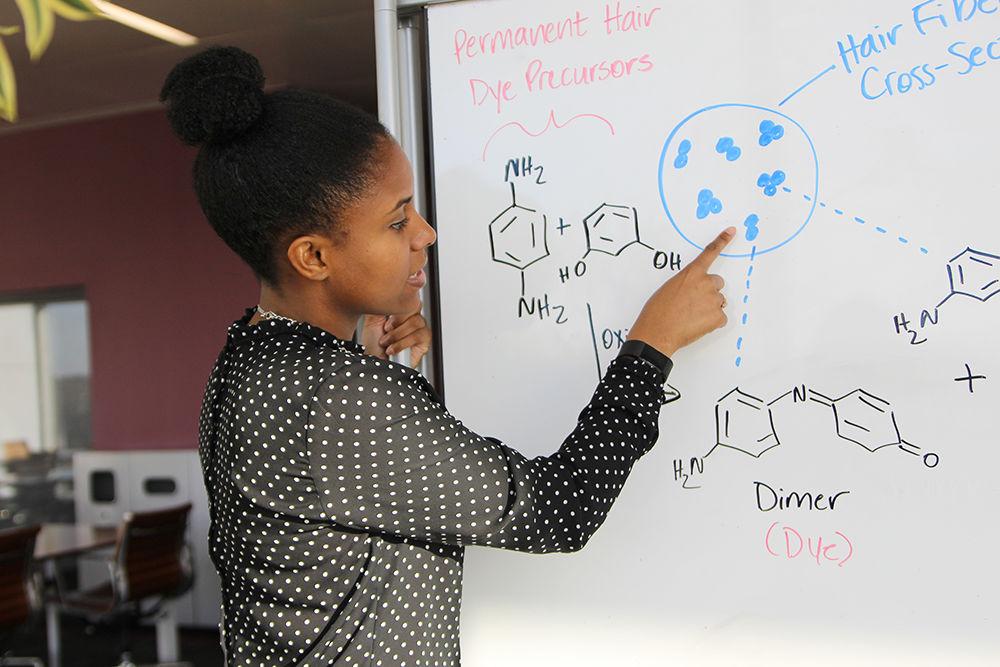 Permanent Hair
Dye Precursors
Hair Fibe
Cross-Sec
NH2
+
HO
OH
NH2
Oxi
H2N
+
N
H2N
O
Dimer
(Dye)